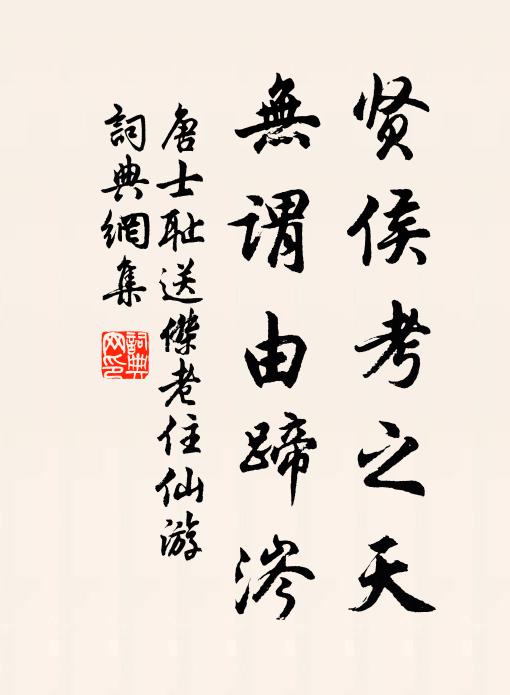 贤侯考之天
無謂由蹄涔
唐士耻送傑老住仙游
詞典網集
詞典网印